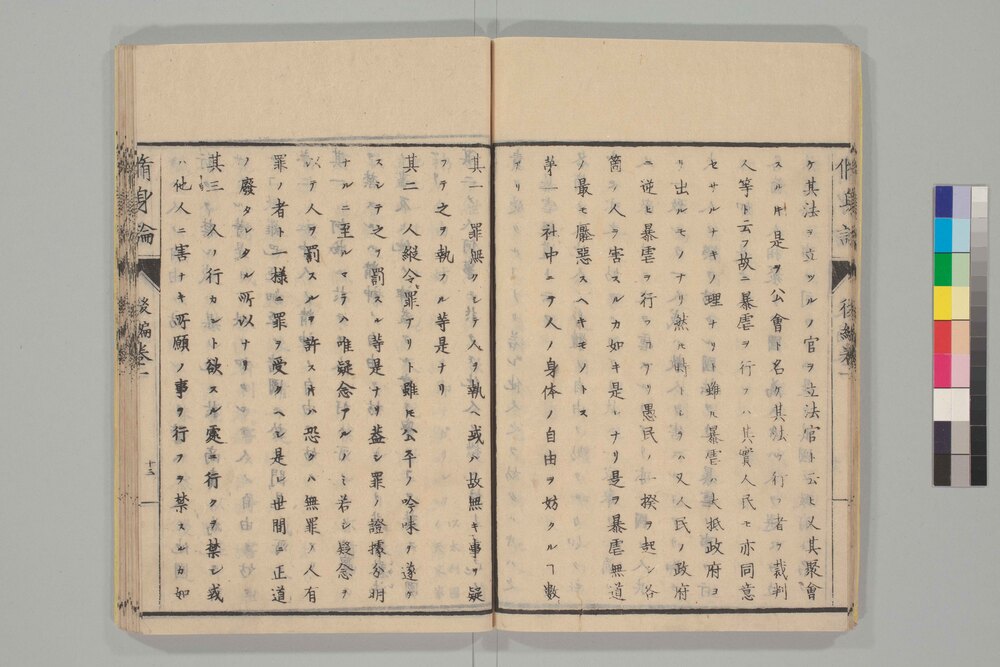 ケ其法ヲ立ツルノ官ヲ立法官ト云ヒ又其聚會
スル片是ヲ公會ト名ケ其法ヲ行フ者ヲ裁判
人等ト云フ故ニ暴虐ヲ行フハ其實人民モ亦同意
セサルナキノ理ナリト雖𪜈暴虐ハ大抵政府ヨ
リ出ルモノナリ然𪜈時トシテハ又人民ノ政府
ニ逆ヒ暴虐ヲ行フコアリ愚民ノ一揆ヲ起シ各
箇ノ人ヲ害スルカ如キ是レナリ是ヲ暴虐無道
ノ最モ壓惡スヘキモノトス
第一社中ニテ人ノ身体ノ自由ヲ妨クルヿ數
アリ
其一 罪無クシテ人ヲ執ヘ或ハ故無キ事ヲ疑
フテ之ヲ執フル等是ナリ
其二 人縦令罪アリト雖𪜈公平ノ吟味ヲ遂ケ
スシテ之ヲ罰スル等是ナリ蓋シ罪ノ證據分明
ナルニ至ルマテハ唯疑念アルノミ若シ疑念ヲ
以テ人ヲ罰スルヲ許ス片ハ恐クハ無罪ノ人有
罪ノ者ト一様ニ罪ヲ受クヘシ是レ世間ニ正道
ノ廢タレタル所以ナリ
其三 人ノ行カント欲スル處ニ行クヲ禁シ或
ハ他人ニ害ナキ所願ノ事ヲ行フヲ禁スルカ如
脩身論 後編巻一
十三